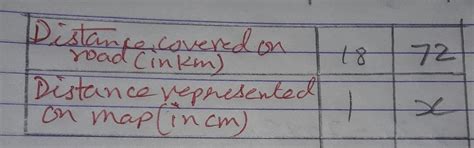 Distance covered on
road (in km) 18 72
Distance represented
on map (in cm) 1 x